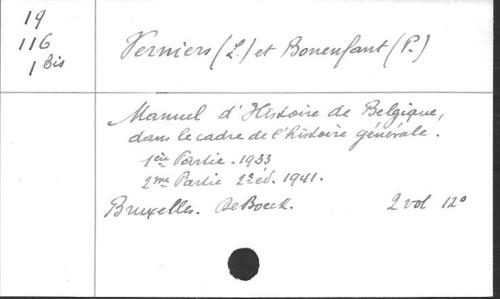 19
116
1 Bis
Verniers (L.) et Bonenfant (P.)
Manuel d'Histoire de Belgique,
dans le cadre de l'histoire générale.
1ère Partie. 1933
2me Partie 2e éd. 1941.
Bruxelles. De Boeck. 2 vol 12°